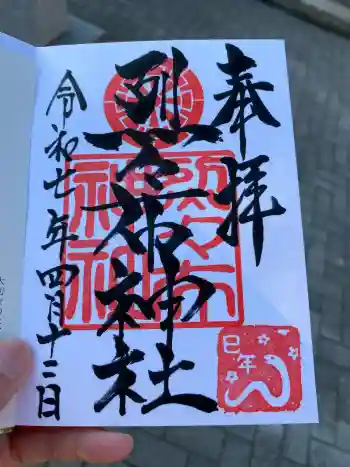 奉拝
烈々布神社
令和七年四月十二日
巳年